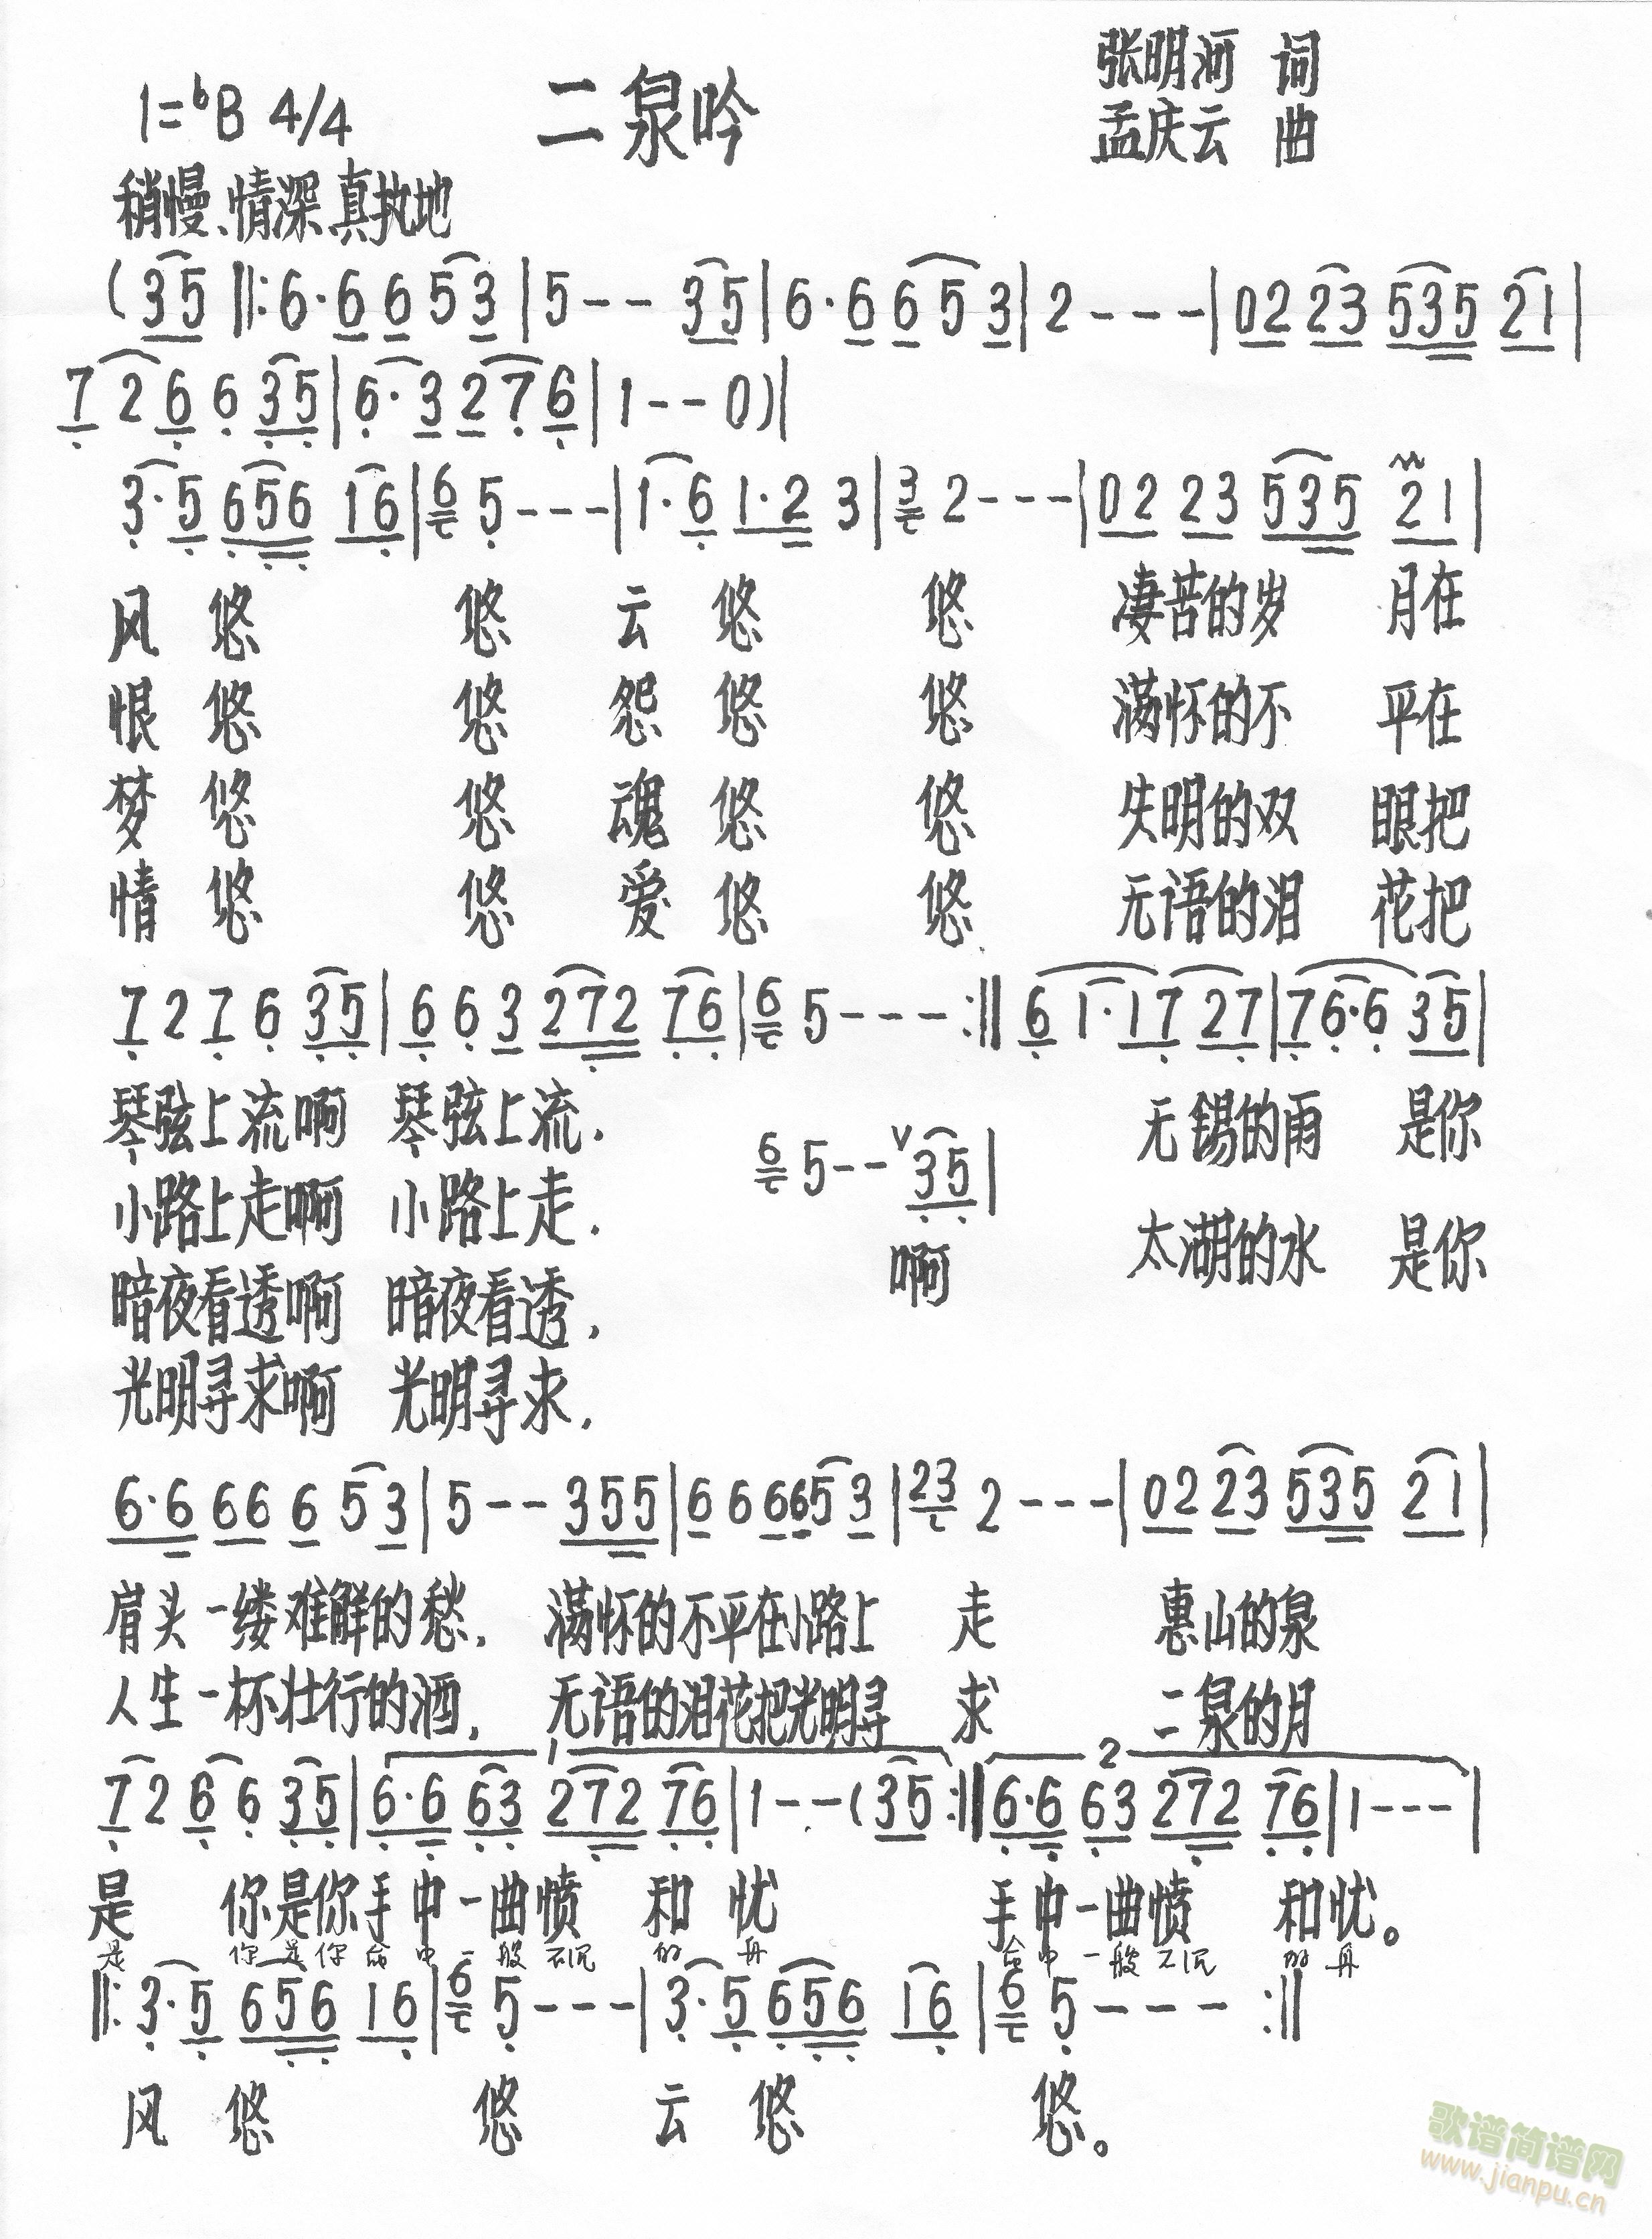 张明河 词
1=♭B 4/4 二泉吟
孟庆云 曲
稍慢、情深、真执地
(35‖:6·66 53|5-- 35|6·66 5 3|2---|02 23 535 21|
7 2 6 6 35|6·3 2 7 6|1--0)|
3·5 656 16|6 5---|1·6 1·2 3|3 2---|02 23 535 21|
风 悠 悠 云 悠 悠 凄苦的岁 月在
恨 悠 悠 怨 悠 悠 满怀的不 平在
梦 悠 悠 魂 悠 悠 失明的双 眼把
情 悠 悠 爱 悠 悠 无语的泪 花把
7 2 7 6 35|6 6 3 272 76|6 5---:‖6 1·17 27|76·6 35|
琴弦上流啊 琴弦上流. 无锡的雨 是你
6 5--∨35|
小路上走啊 小路上走. 太湖的水 是你
啊
暗夜看透啊 暗夜看透,
光明寻求啊 光明寻求,
6·6 66 6 5 3|5--355|6 6 6653|23 2---|02 23 535 21|
肩头一缕难解的愁, 满怀的不平在小路上 走 惠山的泉
人生一杯壮行的酒, 无语的泪花把光明寻 求 二泉的月
1 2
7 2 6 6 35|6·6 63 272 76|1--(35:‖6·6 63 272 76|1---|
是 你是你手中一曲愤 和 忧 手中一曲愤 和忧。
是 你是你命中一般不沉 的 舟 命中一般不沉 的 舟
‖:3·5 656 16|6 5---|3·5 656 16|6 5---:‖
风 悠 悠 云 悠 悠。
歌谱简谱网
www.jianpu.cn